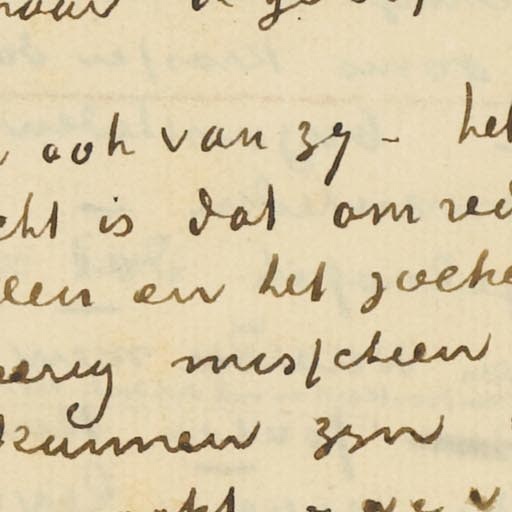 ook van zy - het
cht is dat om rei
een en het zoeke
eerig misschien
kunnen zyn